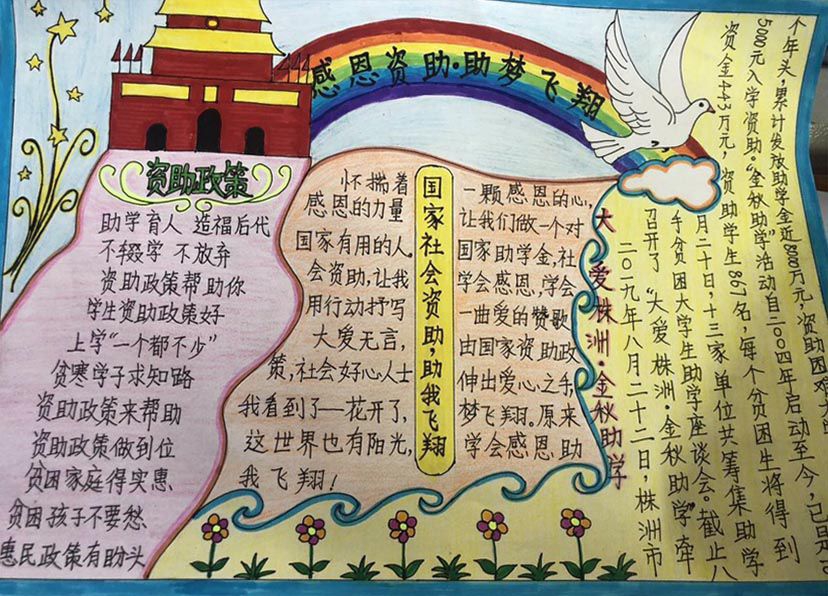 感恩资助·助梦飞翔
资助政策
助学育人 造福后代
不辍学 不放弃
资助政策帮助你
学生资助政策好
上学“一个都不少”
贫寒学子求知路
资助政策来帮助
资助政策做到位
贫困家庭得实惠
贫困孩子不要愁
惠民政策有盼头
国家社会资助,助我飞翔
怀揣着 一颗感恩的心,
感恩的力量 让我们做一个对
国家有用的人。 国家助学金,社
会资助,让我 学会感恩,学会
用行动抒写 一曲爱的赞歌
大爱无言, 由国家资助政
策,社会好心人士 伸出爱心之手,
我看到了一花开了, 梦飞翔。原来
这世界也有阳光, 学会感恩 助
我飞翔!
大爱株洲·金秋助学
二0一九年八月二十二日,株洲市
召开了“大爱株洲·金秋助学”牵
手贫困大学生助学座谈会。截止八
月二十日,十三家单位共筹集助学
资金443万元,资助学生867名,每个贫困生将得到
5000元入学资助。“金秋助学”活动自二00四年启动至今,已是
个年头,累计发放助学金近800万元,资助困难大